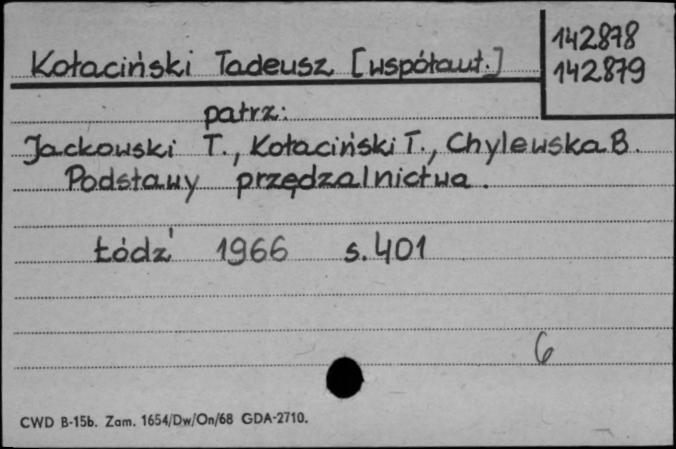 142878
142879
Kołaciński Tadeusz [współaut.]
patrz:
Jackowski T., Kołaciński T., Chylewska B.
Podstawy przędzalnictwa.
Łódź 1966 s. 401
6
CWD B-15b. Zam. 1654/Dw/On/68 GDA-2710.